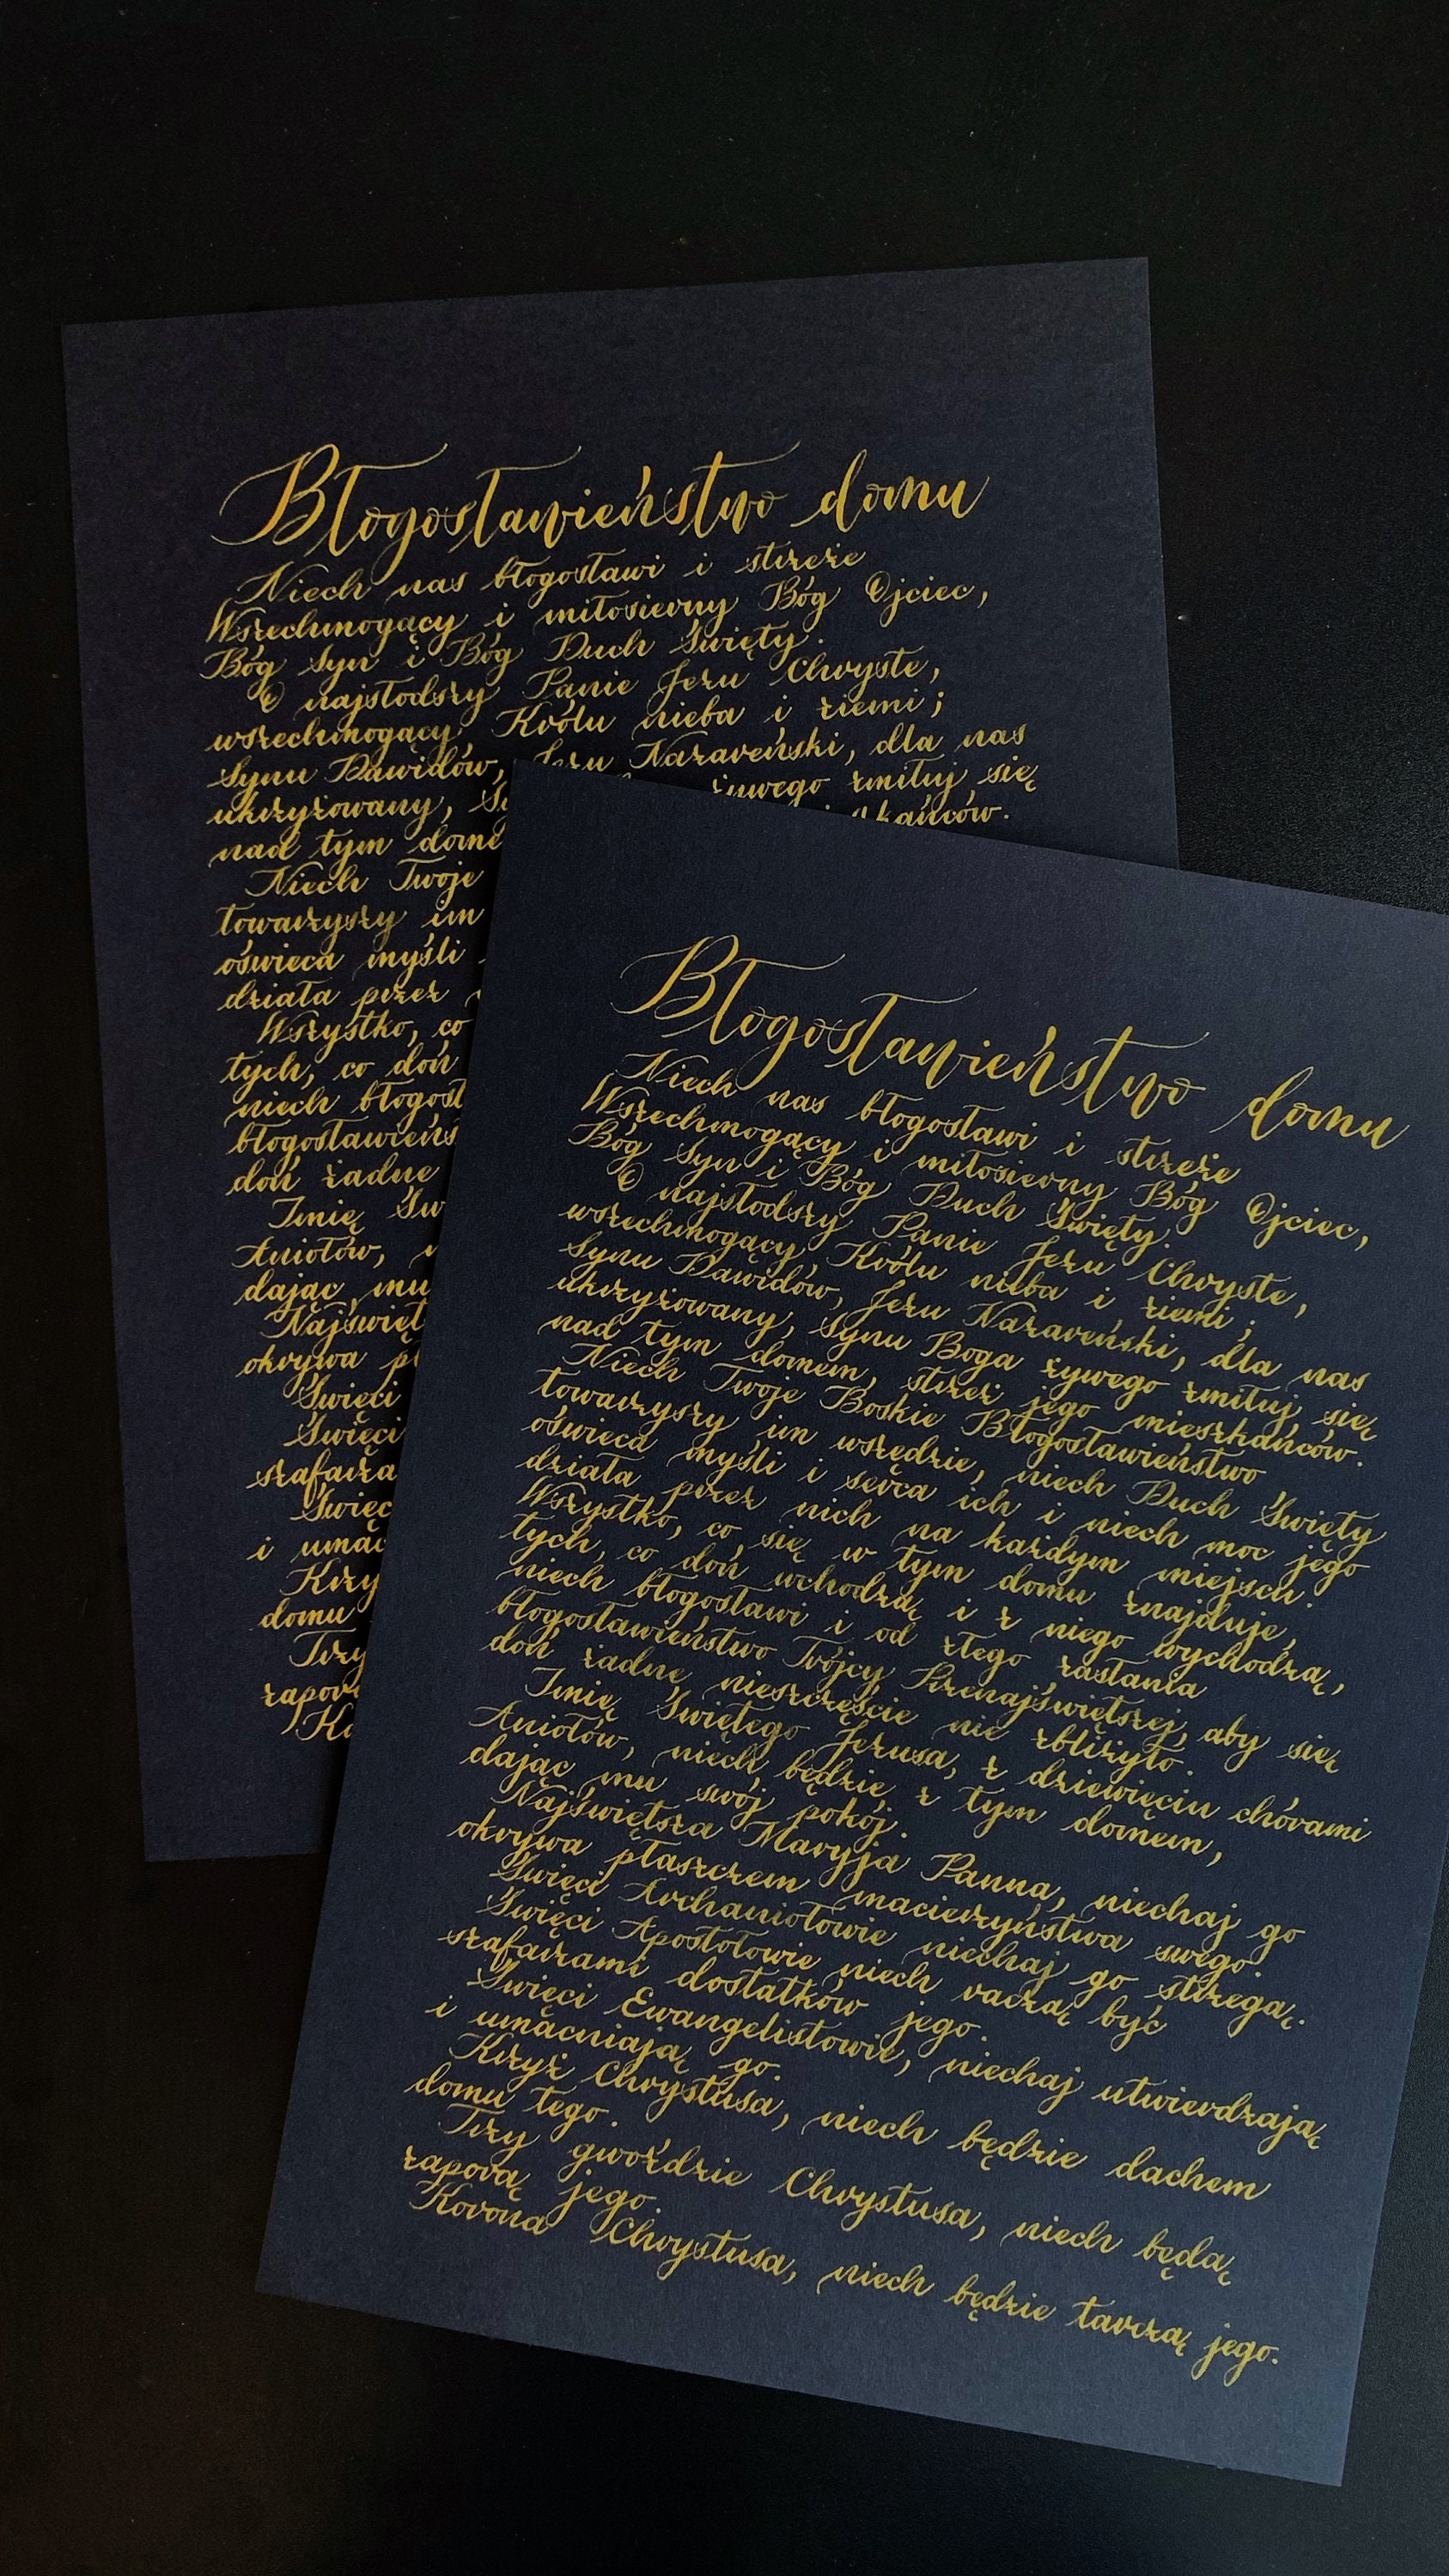 Błogosławieństwo domu
Niech nas błogosławi i strzeże
Wszechmogący i miłosierny Bóg Ojciec,
Bóg Syn i Bóg Duch Święty.
O najsłodszy Panie Jezu Chryste,
wszechmogący Królu nieba i ziemi;
Synu Dawidów, Jezu Nazareński, dla nas
ukrzyżowany, żywego zmiłuj się
nad tym
Niech Twoje
towarzyszy im
oświeca myśli
działa przez
Wszystko, co
tych, co doń
niech
doń żadne
Imię
Aniołów,
dając mu
okrywa
Święci
Święci
i
domu
Błogosławieństwo domu
Niech nas błogosławi i strzeże
Wszechmogący i miłosierny Bóg Ojciec,
Bóg Syn i Bóg Duch Święty.
O najsłodszy Panie Jezu Chryste,
wszechmogący Królu nieba i ziemi;
Synu Dawidów, Jezu Nazareński, dla nas
ukrzyżowany, Synu Boga żywego zmiłuj się
nad tym domem, strzeż jego mieszkańców.
Niech Twoje Boskie Błogosławieństwo
towarzyszy im wszędzie, niech Duch Święty
oświeca myśli i serca ich i niech moc jego
działa przez nich na każdym miejscu.
Wszystko, co się w tym domu znajduje,
tych, co doń wchodzą i z niego wychodzą,
niech błogosławi i od złego zasłania
błogosławieństwo Trójcy Przenajświętszej, aby się
doń żadne nieszczęście nie zbliżyło.
Imię Świętego Jezusa, z dziewięciu chórami
Aniołów, niech będzie z tym domem,
dając mu swój pokój.
Najświętsza Maryja Panna, niechaj go
okrywa płaszczem macierzyństwa swego.
Święci Archaniołowie niechaj go strzegą.
Święci Apostołowie niech raczą być
szafarzami dostatków jego.
Święci Ewangelistowie, niechaj utwierdzają
i umacniają go.
Krzyż Chrystusa, niech będzie dachem
domu tego.
Trzy gwoździe Chrystusa, niech będą
zaporą jego.
Korona Chrystusa, niech będzie tarczą jego.